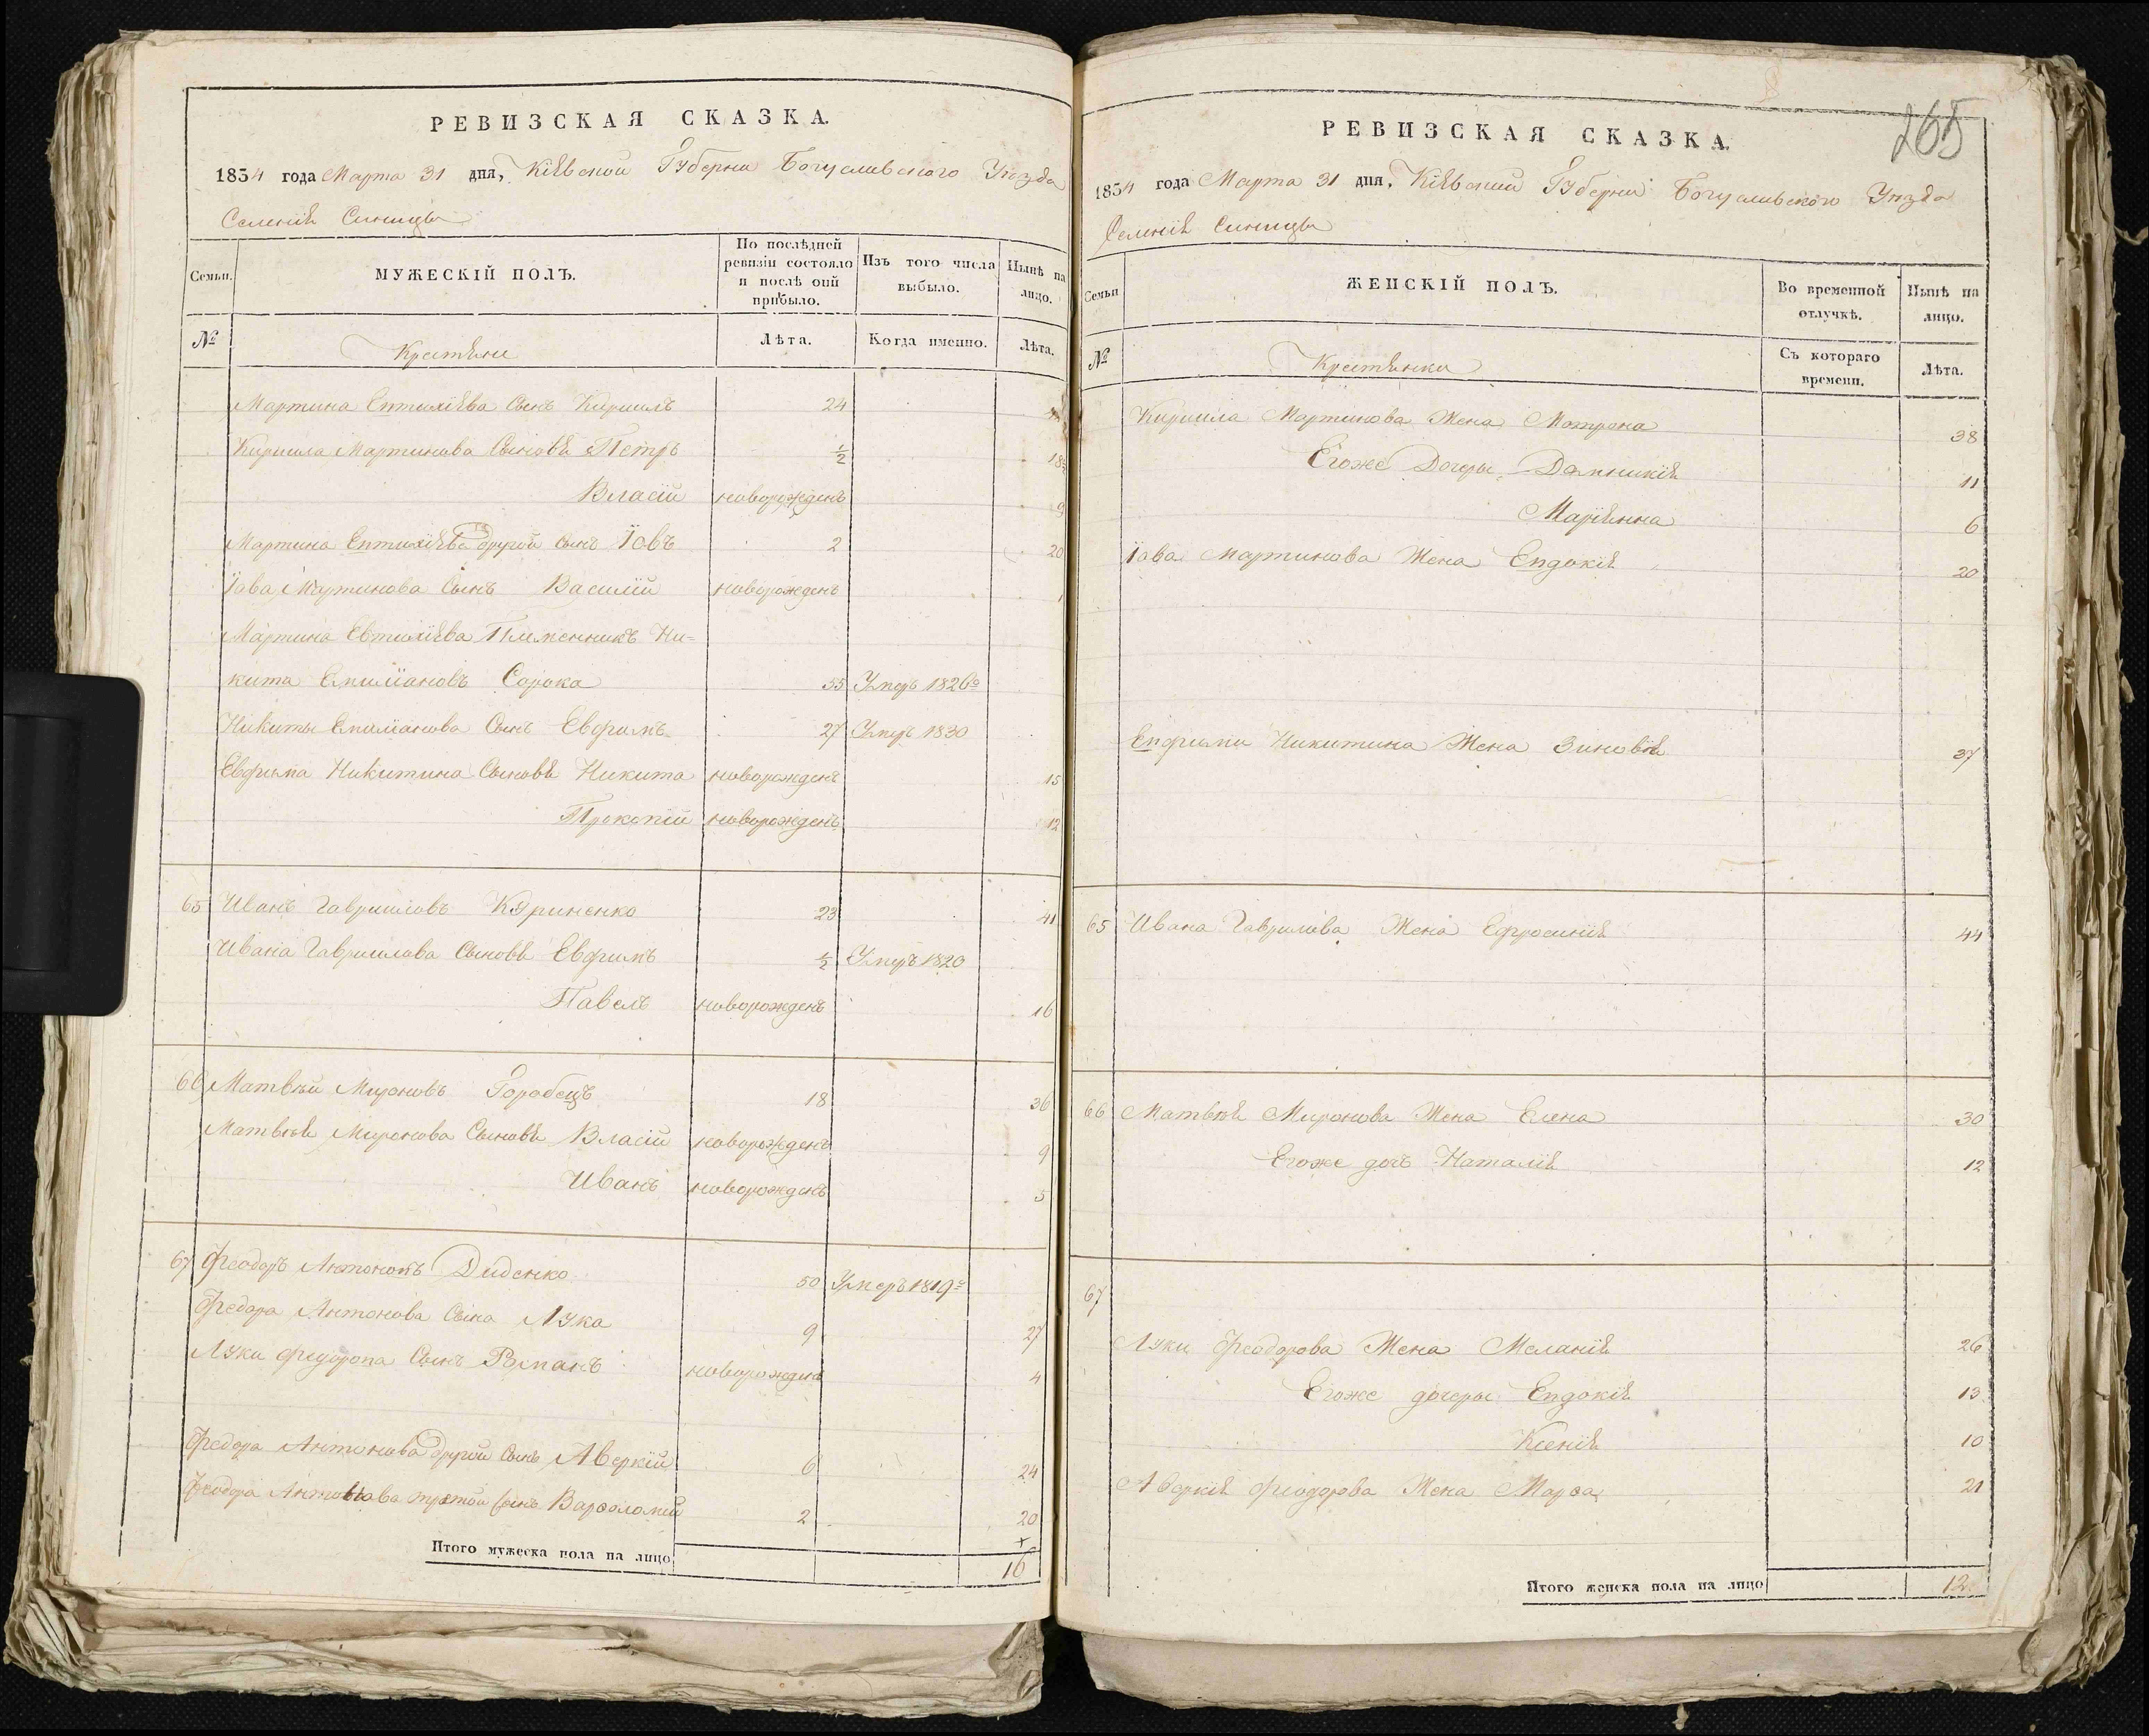 РЕВИЗСКАЯ СКАЗКА.
1834 года Марта 31 дня, Кіевской Губерніи Богуславского Уезда
Селенія Синицы
Семьи.
МУЖЕСКІЙ ПОЛЪ.
По послѣдней ревизіи состояло и послѣ оній прибыло.
Изъ того числа выбыло.
Нынѣ на лицо.
№
Крестьяне
Лѣта.
Когда именно.
Лѣта.
Мартина Евтихіева Сынъ Кирилъ 24
Кирила Мартинова Сыновя Петръ ½ 18½
Власій новорожденъ 9
Мартина Евтихіева другой Сынъ Іовъ 2 20
Іова Мартинова Сынъ Василій новорожденъ 1
Мартина Евтихіева Племенникъ Ни-
кита Емиліановъ Сорока 55 Умеръ 1826го
Никиты Емиліанова Сынъ Евфимъ 27 Умеръ 1830
Евфима Никитина Сыновя Никита новорожденъ 15
Прокопій новорожденъ 12
65 Иванъ Гавриловъ Куриненко 23 41
Ивана Гаврилова Сыновя Евфимъ ½ Умеръ 1820
Павелъ новорожденъ 16
66 Матвѣй Мироновъ Горобецъ 18 36
Матвѣя Миронова Сыновя Власій новорожденъ 9
Иванъ новорожденъ 5
67 Феодоръ Антоновъ Диденко 50 Умеръ 1819го
Федора Антонова Сына Лука 9 27
Луки Федорова Сынъ Романъ новорожденъ 4
Федора Антонова другой Сынъ Аверкій 6 24
Феодора Антонова третой Сынъ Варфоломей 2 20
Итого мужеска пола на лицо 16
265
РЕВИЗСКАЯ СКАЗКА.
1834 года Марта 31 дня, Кіевской Губерніи Богуславского Уезда
Селенія Синицы
Семьи
ЖЕНСКІЙ ПОЛЪ.
Во временной отлучкѣ.
Нынѣ на лицо.
№
Крестянки
Съ котораго времени.
Лѣта.
Кирила Мартинова Жена Мотрона 38
Егоже Дочеры Домникія 11
Маріянна 6
Іова Мартинова Жена Евдокія 20
Евфима Никитина Жена Зиновія 37
65 Ивана Гаврилова Жена Ефросинія 44
66 Матвѣя Миронова Жена Елена 30
Егоже дочъ Наталія 12
67
Луки Феодорова Жена Меланія 26
Егоже дочеры Евдокія 13
Ксенія 10
Аверкія Феодорова Жена Марѳа 21
Итого женска пола на лицо 12